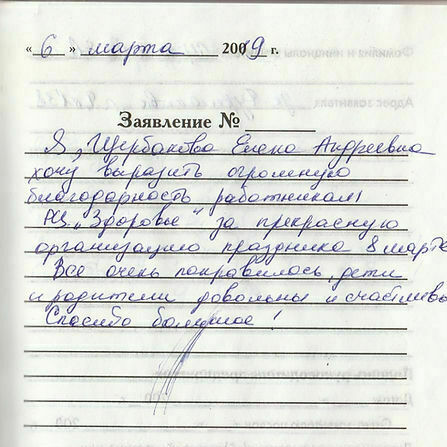 « 6 » марта 2009 г.
Заявление №
Я, Щербакова Елена Андреевна
хочу выразить огромную
благодарность работникам
РЦ „Здоровье" за прекрасную
организацию праздника 8 марта
Все очень понравилось, дети
и родители довольны и счастливы
Спасибо большое!